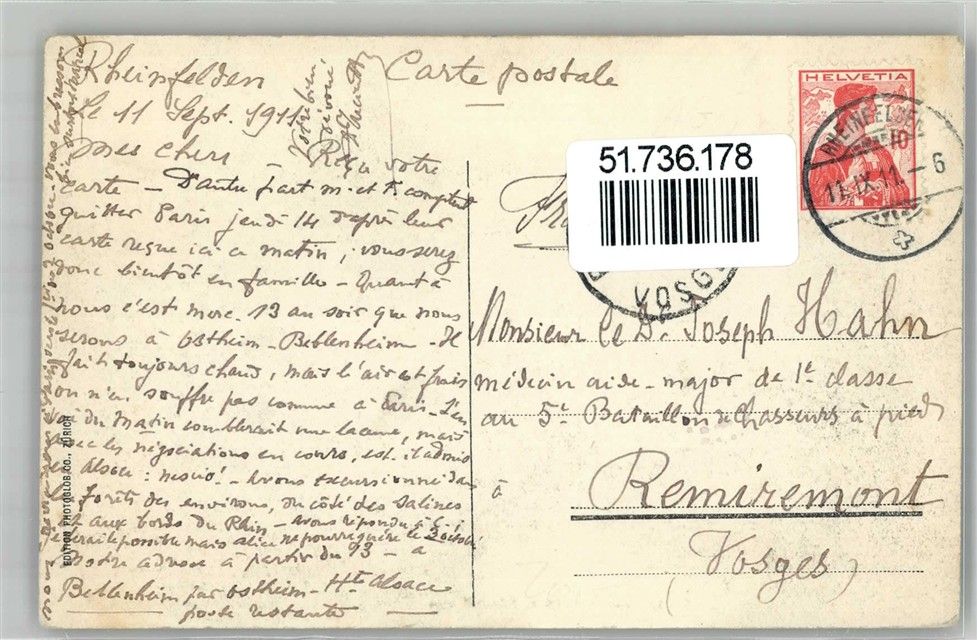 Carte postale
Rheinfelden
Le 11 Sept. 1911
mes chers - Reçu votre
carte - D'autre part m. et T. comptent
quitter Paris jeudi 14 d'après leur
carte reçue ici ce matin ; vous serez
donc bientôt en famille - Quant à
nous c'est merc. 13 au soir que nous
serons à Ostheim - Beblenheim - Il
fait toujours chaud, mais l'air est frais
on n'en souffre pas comme à Paris -
du matin comblerait une lacune, mais
avec les négociations en cours, est-il admis
en Alsace : nescio! - avons excursionné dans
les forêts des environs, du côté des salines
et aux bords du Rhin - avons répondu à
serait possible mais alice ne pourra guère le 3 octobre
Notre adresse à partir du 13 - à
Beblenheim par Ostheim - Hte Alsace
poste restante
EDITION PHOTOGLOB CO., ZÜRICH
HELVETIA
10
RHEINFELDEN
11.IX.11.-6
51.736.178
VOSGES
Monsieur le Dr. Joseph Hahn
médecin aide-major de 1e classe
au 5e Bataillon de Chasseurs à pied
à Remiremont
(Vosges)